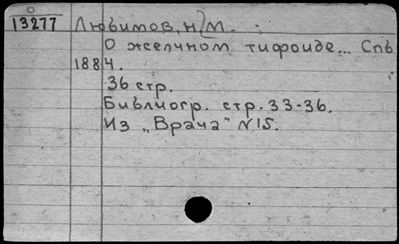 13277 Любимов, Н М.
О желчном тифоиде... Спб
1884.
36 стр.
Библиогр. стр. 33-36.
Из „Врача" N 15.